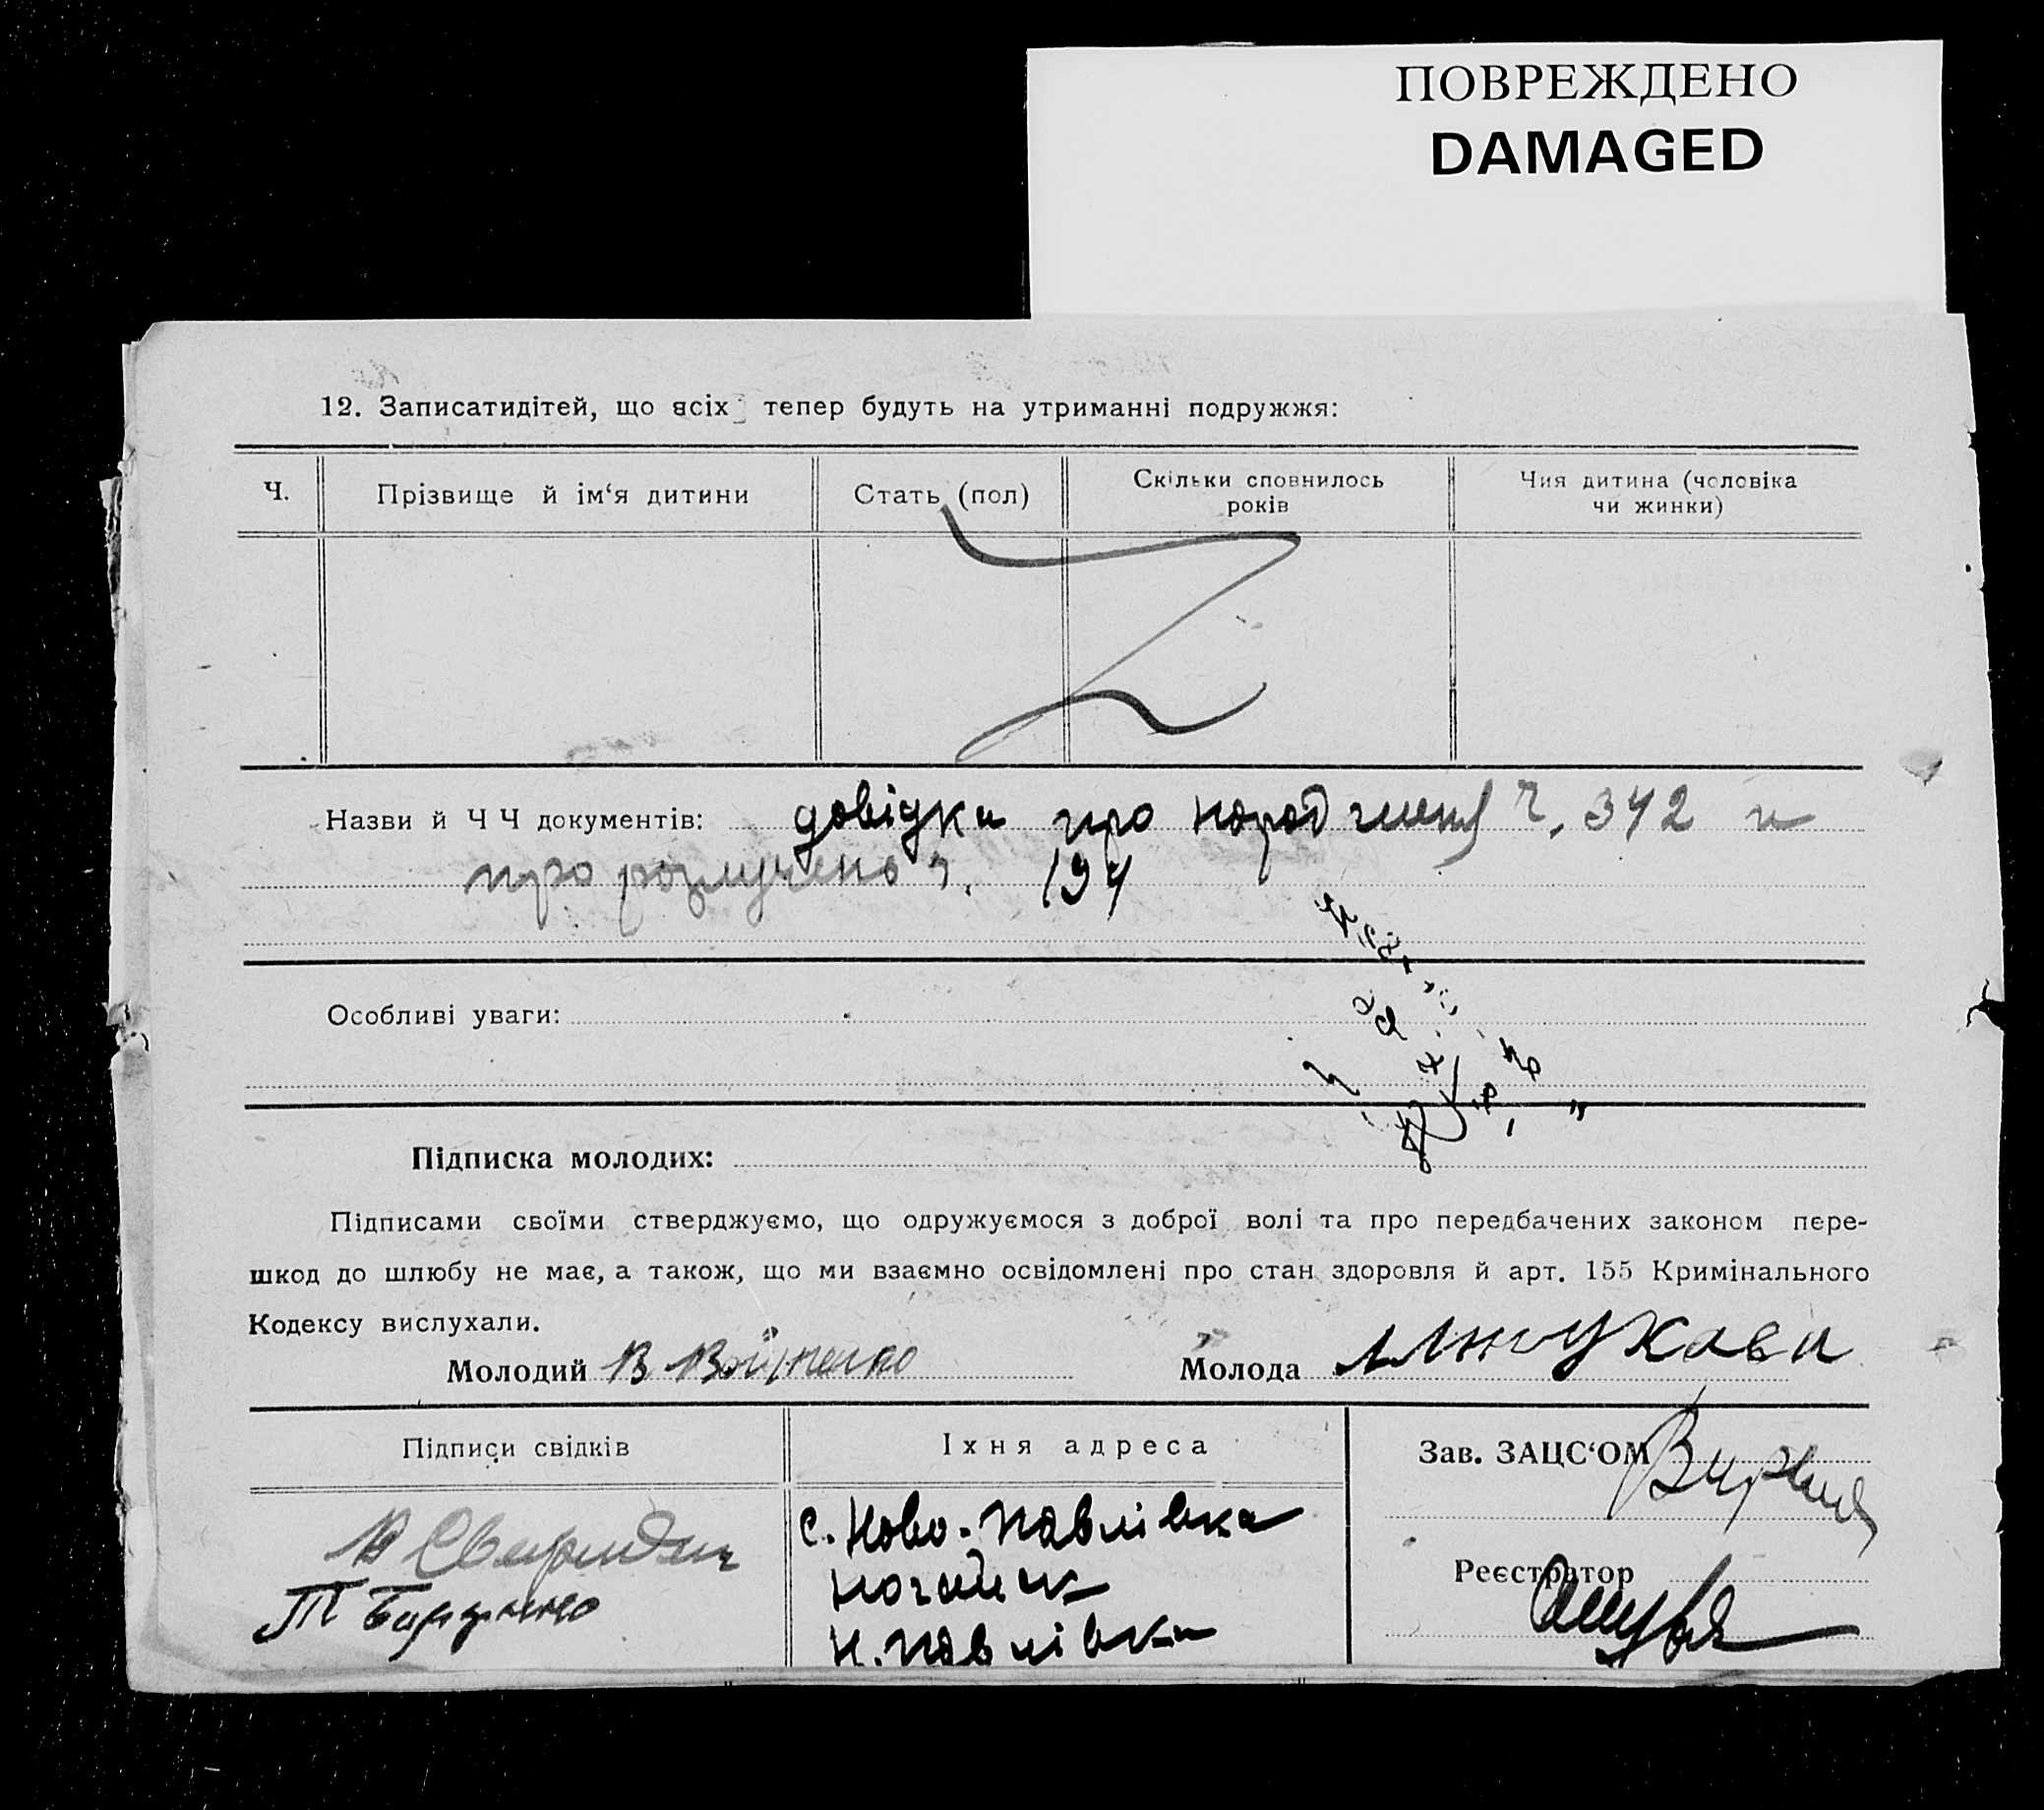 ПОВРЕЖДЕНО
DAMAGED
12. Записатидітей, що всіх тепер будуть на утриманні подружжя:
Ч. Прізвище й ім‘я дитини Стать (пол) Скільки сповнилось років Чия дитина (чоловіка чи жинки)
Назви й Ч Ч документів: довідка про народження Ч. 342 и
про розлучень ч. 194
Особливі уваги:
Підписка молодих:
Підписами своїми стверджуємо, що одружуємося з доброї волі та про передбачених законом пере-
шкод до шлюбу не має, а також, що ми взаємно освідомлені про стан здоровля й арт. 155 Кримінального
Кодексу вислухали.
Молодий В Молода
Підписи свідків Іхня адреса Зав. ЗАЦС‘ОМ
с. Ново-Павлівка
Реєстратор
Т
Н. Павлівка